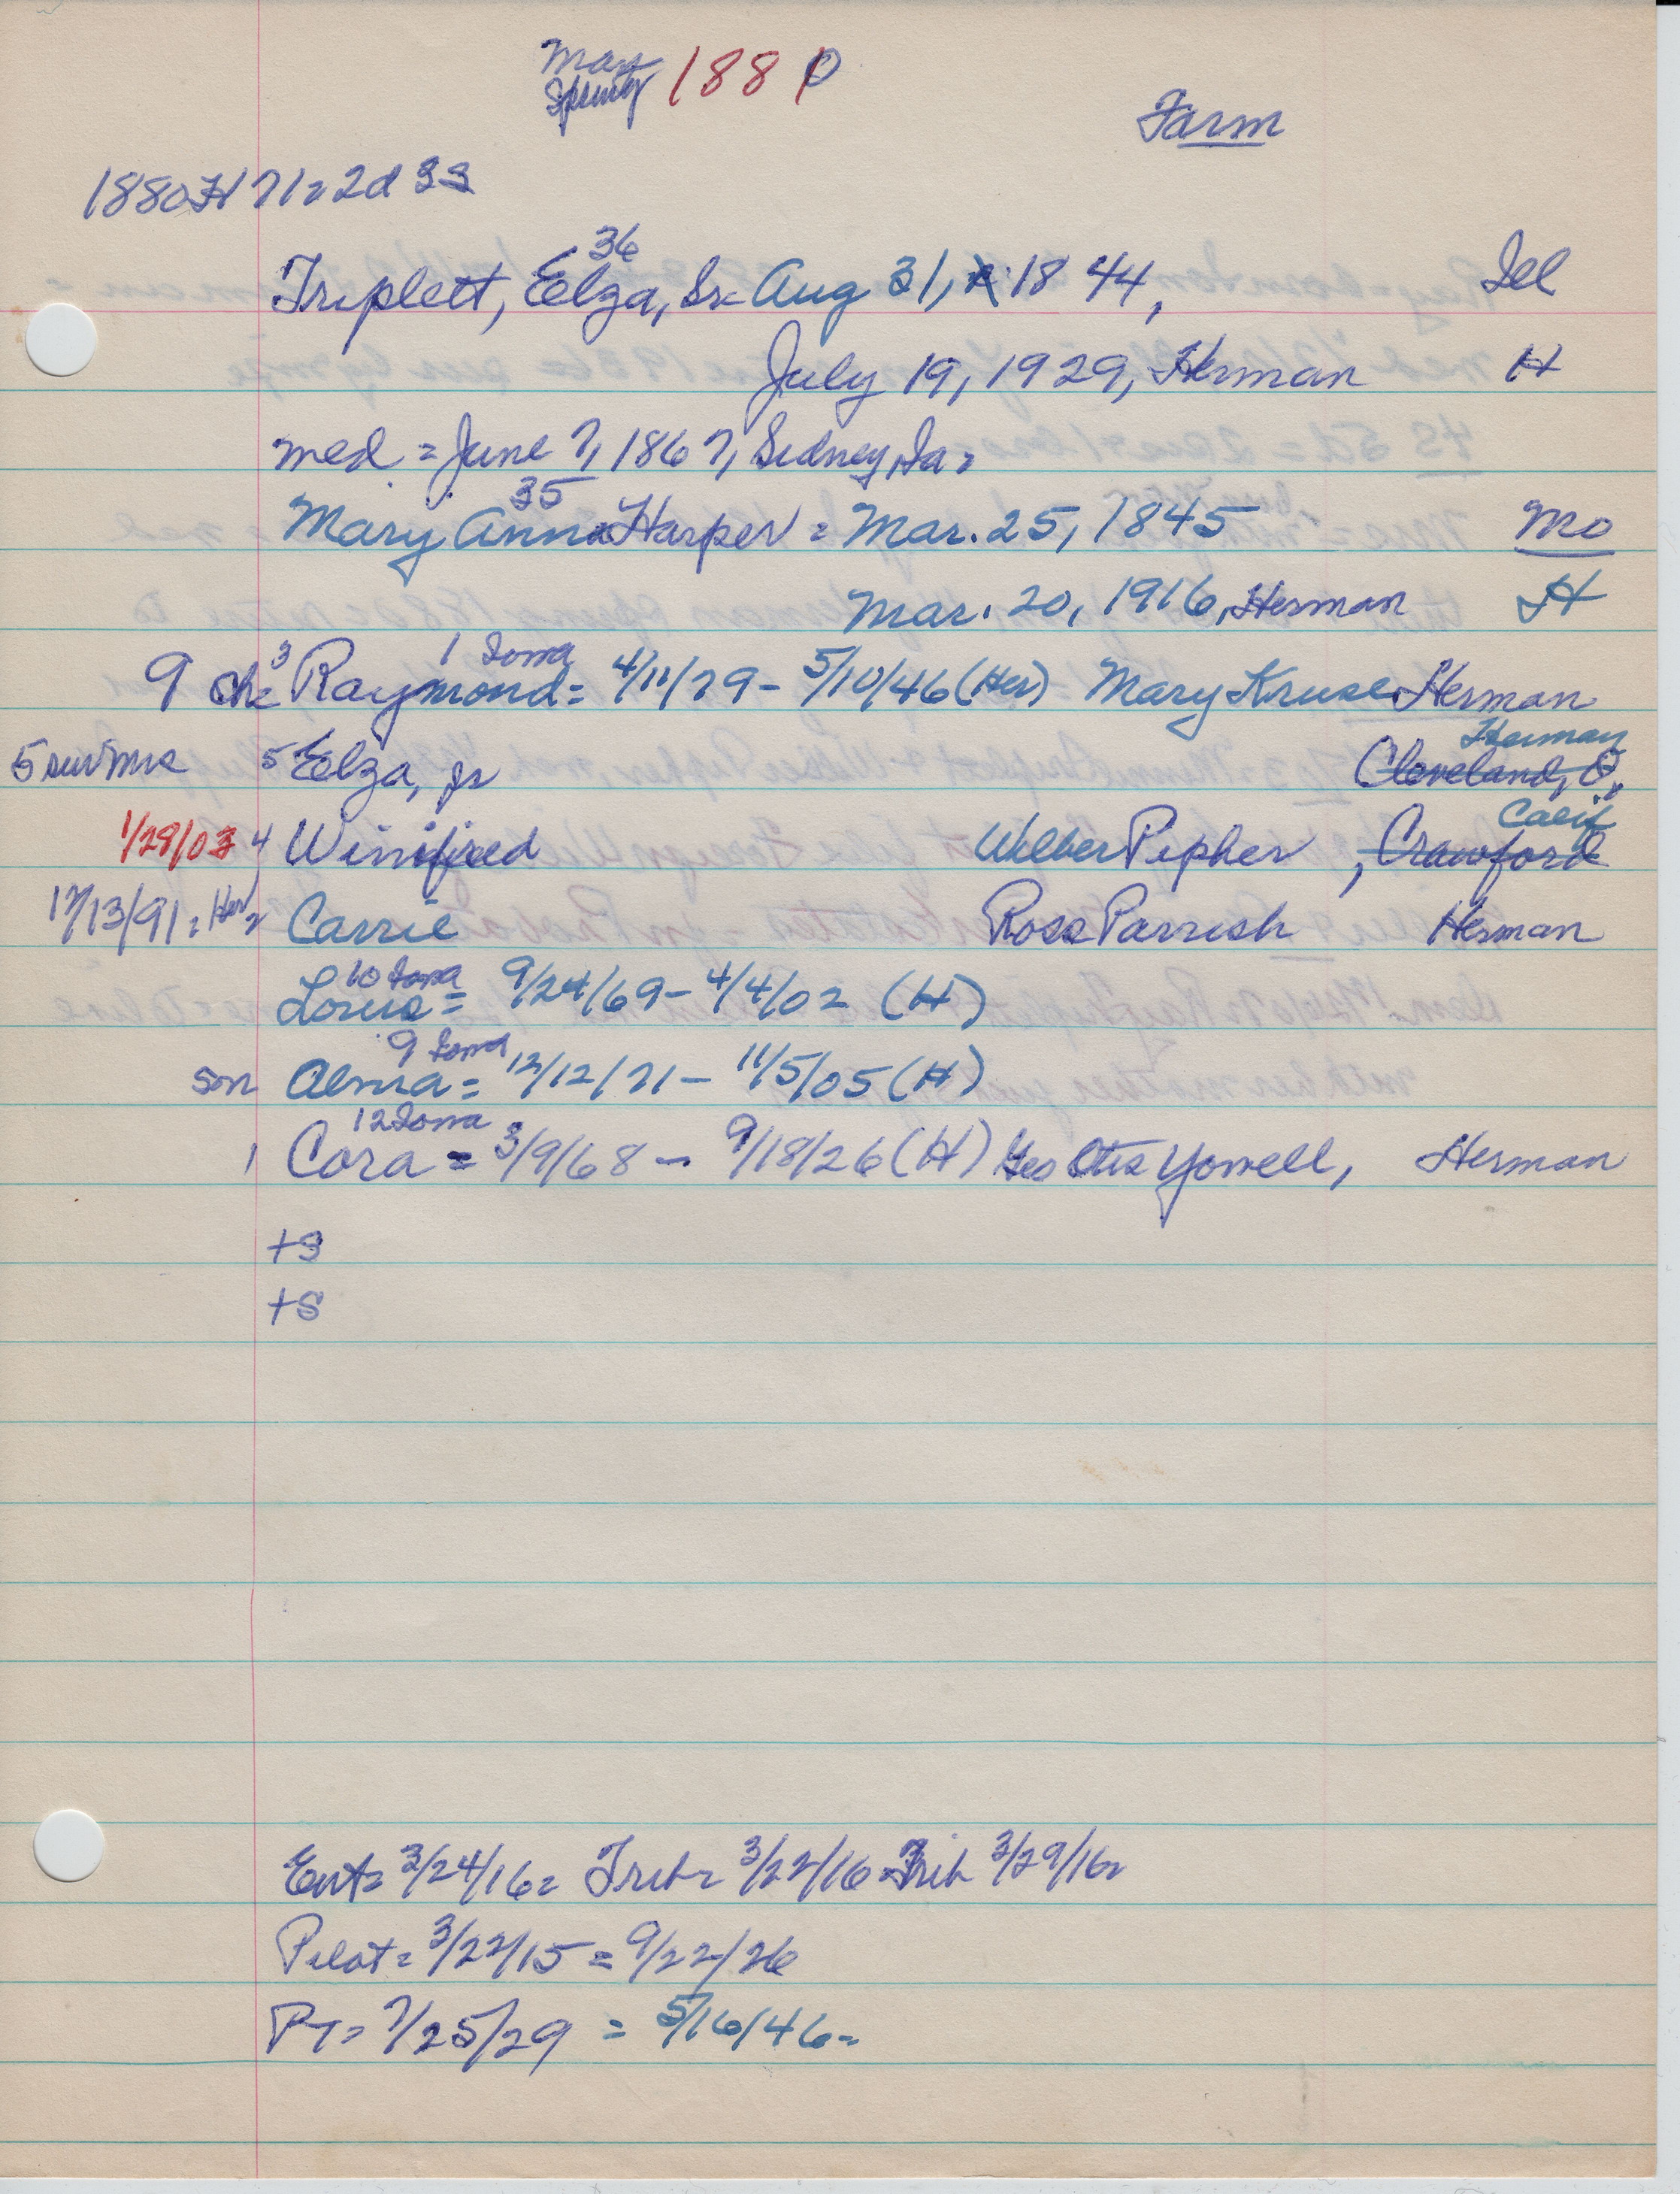 May 1880
Spring
Farm
1880 H 71 = 2d 3s
36
Triplett, Elza, Sr. Aug 31, 1844, Ill
July 19, 1929, Herman H
med = June 7, 1867, Sidney, Ia =
35
Mary Anna Harper = Mar. 25, 1845 Mo
Mar. 20, 1916, Herman H
1 Iowa
9 ch = 3 Raymond = 4/11/79 - 5/10/46 (Her) Mary Kruse Herman
Herman
5 surv Mrs 5 Elza, Jr Cleveland, O.,
Calif
1/29/03 4 Winifred Wilber Pipher, Crawford
12/13/91 = Her 2 Carrie Ross Parrish Herman
10 Iowa
Louis = 9/24/69 - 4/4/02 (H)
9 Iowa
son Alma = 12/12/71 - 11/5/05 (H)
12 Iowa
1 Cora = 3/9/68 - 9/18/26 (H) Geo Otis Yowell, Herman
+S
+S
Ent = 3/24/16 = Trib = 3/22/16 = Trib 3/29/16 =
Pilot = 3/22/15 = 9/22/26
PT = 7/25/29 = 5/16/46 =